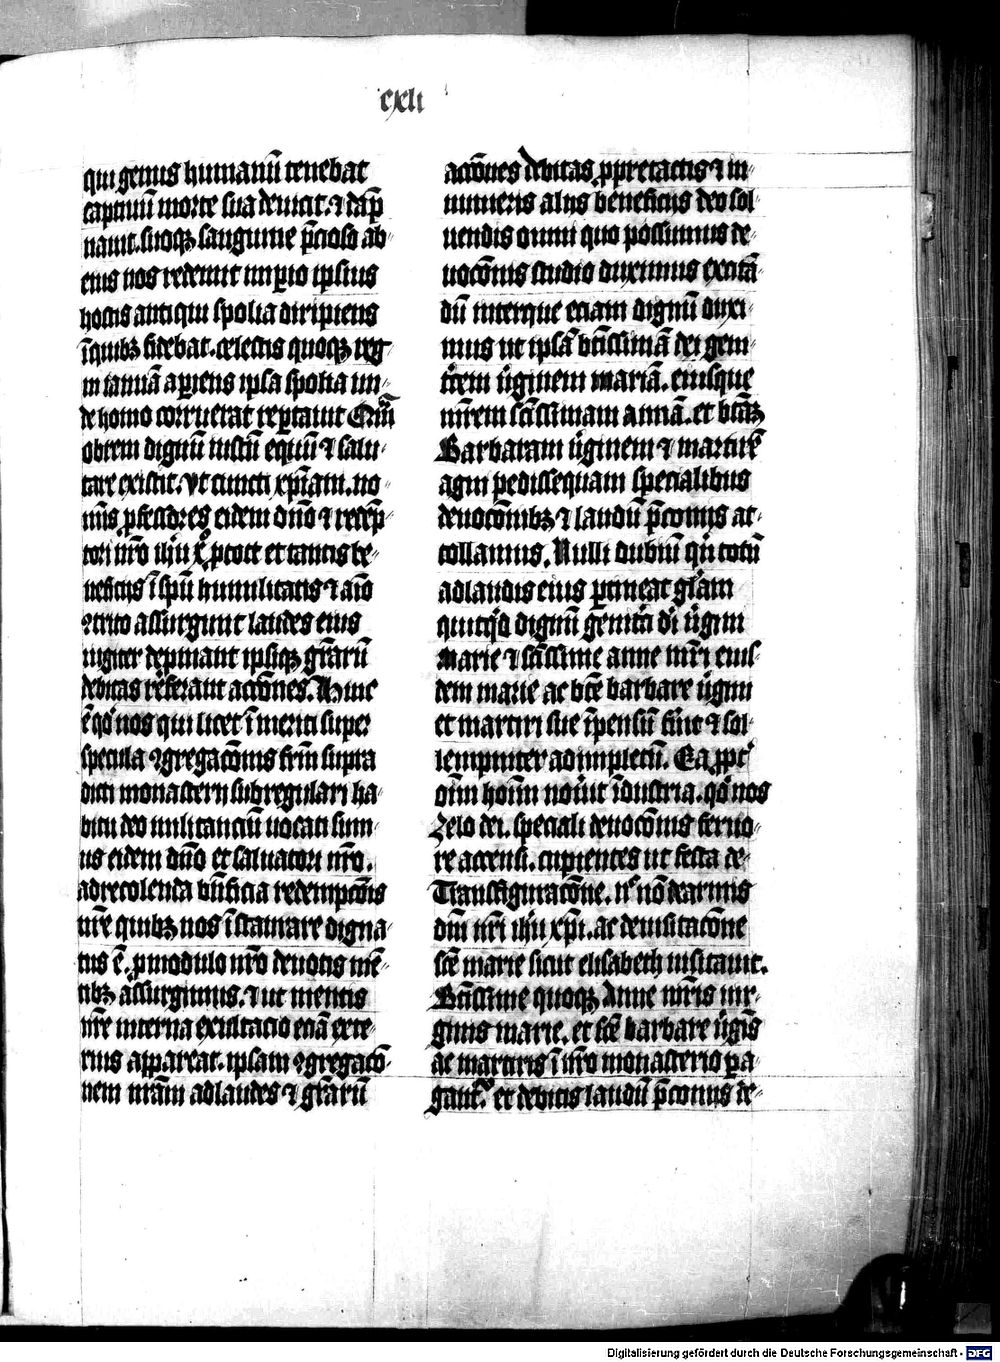 cxli
qui genus humanū tenebat
captiuū morte sua deuicit. ⁊ dāp
nauit. suoqꝫ sanguine p̄cioso ab
eius nos redemit imꝑio ipsius
hostis antiqui spolia diripiens
ī quibꝫ fidebat. celestis quoqꝫ reg
ni ianuā aꝑiens ipsa spolia un
de homo corruerat reꝑtauit
obrem dignū iustū equū ⁊ salu
tare existit. vt cuncti xp̄iam. no
mīs ꝓfessores eidem dn̄o ⁊ redēp
tori nr̄o ih̄u et tantis be
neficijs ī spū humilitatis ⁊ aīo
ꝯtrito assurgunt laudes eius
iugiter depmant ipsiqꝫ gr̄arū
debitas referant acc̄ones. Hinc
ē qͦ nos qui licet īmeriti super
specula ꝯgregac̄onis fr̄m supra
dicti monasterij subregulari ha
bitu deo militanciū uocati sum
us eidem dn̄o et saluatori nr̄o.
ad recolenda bn̄ficia redempc̄ois
nr̄e quibꝫ nos īstaurare digna
tus ē. ꝓ modulo nr̄o deuotis mē
tibꝫ assurgimus. ⁊ ut mentis
nr̄e interna exultacio eciā exte
rius appareat. ipsam ꝯgregac̄o
nem nr̄am ad laudes ⁊ gr̄arū
acc̄ones debitas ꝓ pretactis ⁊ in
numeris alijs beneficijs deo sol
uendis omni quo possumus de
uoc̄onis studio duximus excitā
dū interque eciam dignū duxi
mus ut ipsā btīssimā dei geni
tricem v̄ginem mariā. eiusque
mr̄em sc̄issimam annā. et btāꝫ
Barbaram v̄ginem ⁊ martirē
agni pedissequam specialibus
deuoc̄onibꝫ ⁊ laudū p̄conijs at
tollamus. Nulli dubiū qn̄ totū
ad laudis eius ꝑtineat gl̄am
quitqd dignū genit̄ci di v̄gini
Marie ⁊ sc̄issime anne mr̄i eius
dem marie ac bt̄e barbare v̄gini
et martiri sue īpensū fūit ⁊ sol
lempniter adimpletū. Ea ꝓpt
oīm hoīm nouit īdustria. qͦ nos
Zelo dei. speciali deuoc̄onis feruo
re accensi. cupientes ut festa de
Transfigurac̄one. nͨ nō de armis
dn̄i nr̄i ih̄u xp̄i. ac de uisitac̄one
sc̄e marie sicut elisabeth uisitauit.
Bt̄issime quoqꝫ Anne mr̄is uir
ginis marie. et sc̄e barbare v̄gīs
ac martiris ī nr̄o monasterio ꝑa
gant. et debitis laudū p̄conijs de
Digitalisierung gefördert durch die Deutsche Forschungsgemeinschaft - DFG